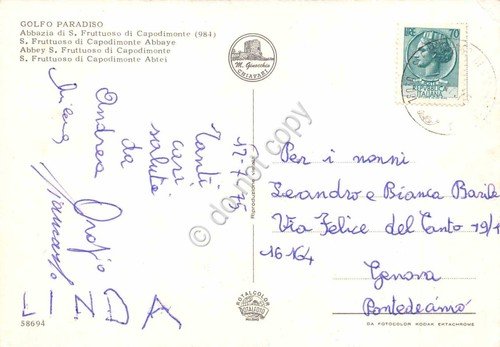 GOLFO PARADISO
Abbazia di S. Fruttuoso di Capodimonte (984)
S. Fruttuoso di Capodimonte Abbaye
Abbey S. Fruttuoso di Capodimonte
S. Fruttuoso di Capodimonte Abtei
M. Ginocchio
CHIAVARI
LIRE 70
POSTE
REPUBBLICA
ITALIANA
17-7-75
Tanti
cari
saluti
da
Andrea
Milena
Per i nonni
Leandro e Bianca Barile
Via Felice del Canto 19/1
16164
Genova
Pontedecimo
do not copy
ROYALCOLOR
ROTALFOTO
MILANO
58694
DA FOTOCOLOR KODAK EKTACHROME